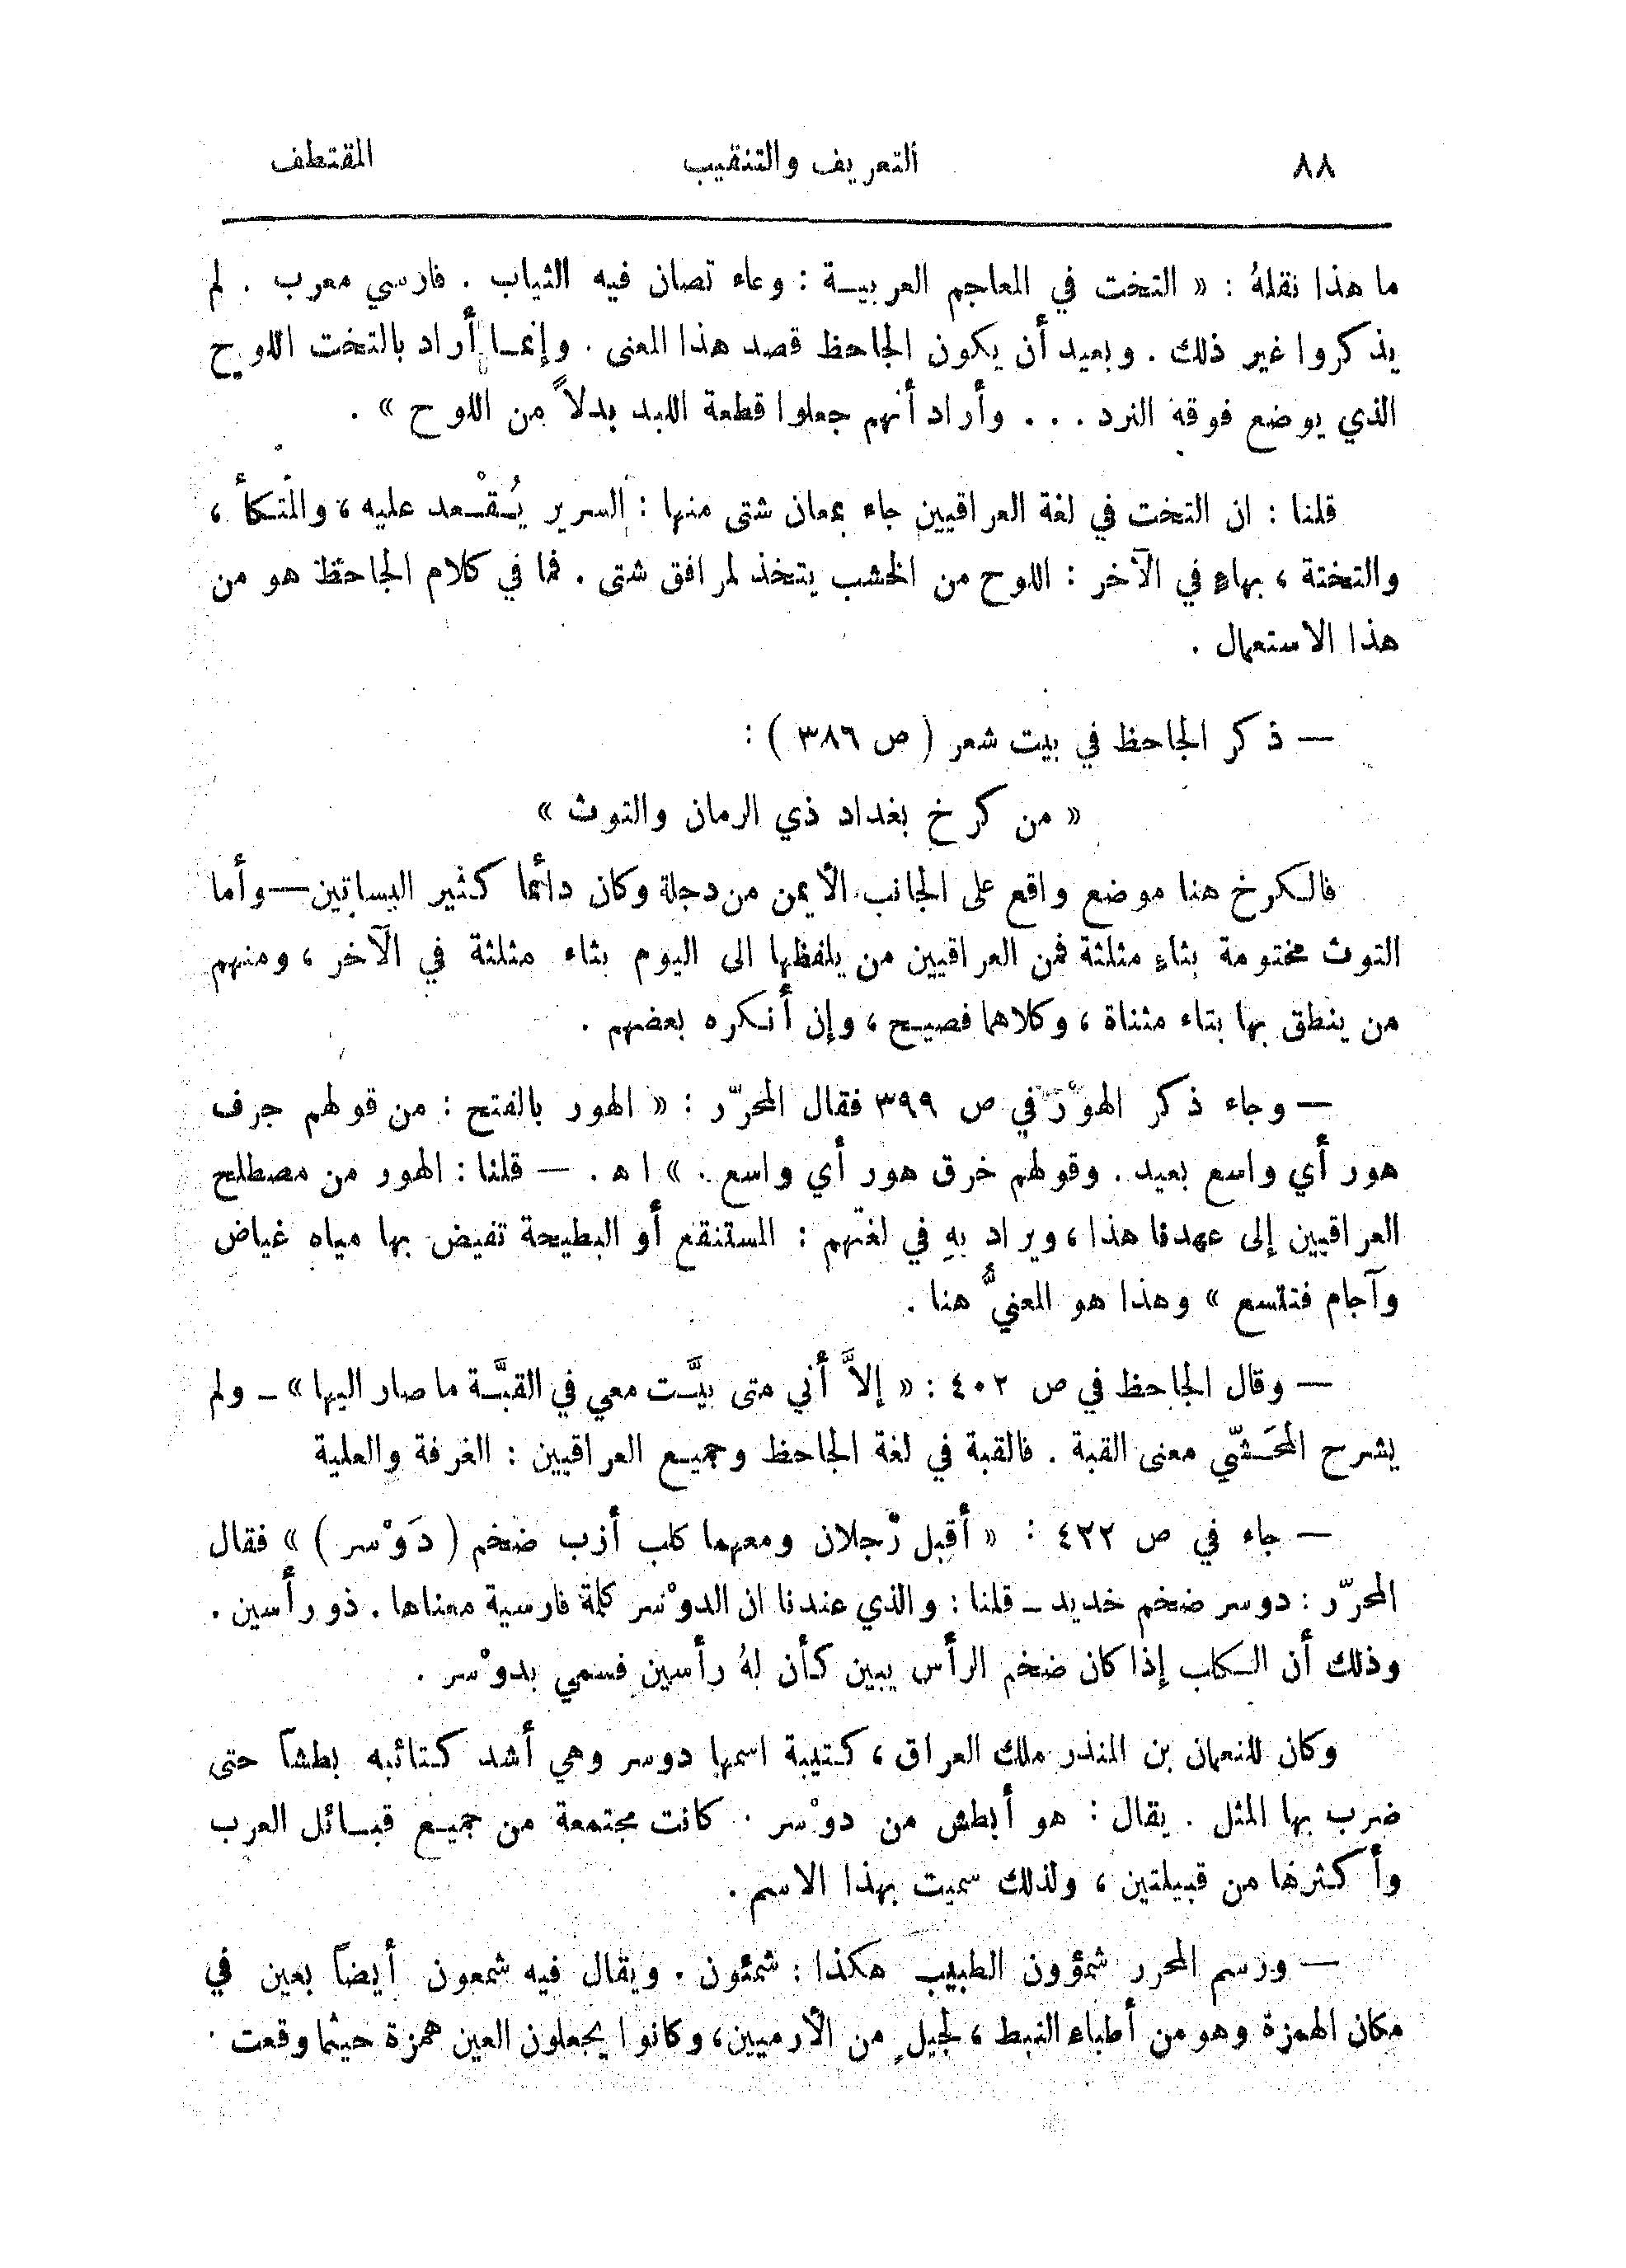 ٨٨ التعريف والتنقيب المقتطف
ما هذا نقلهُ : « التخت في المعاجم العربيــة : وعاء تصان فيه الثياب . فارسي معرب . لم
يذكروا غير ذلك . وبعيد أن يكون الجاحظ قصد هذا المعنى . وإنمــا أراد بالتخت اللوح
الذي يوضع فوقه النرد . . . وأراد أنهم جعلوا قطعة اللبد بدلاً من اللوح » .
قلنا : ان التخت في لغة العراقيين جاء بمعان شتى منها : السرير يُـقْـعد عليه ، والمتـكأ ،
والتختة ، بهاءٍ في الآخر : اللوح من الخشب يتخذ لمرافق شتى . فما في كلام الجاحظ هو من
هذا الاستعمال .
— ذكر الجاحظ في بيت شعر ( ص ٣٨٦ ) :
« من كرخ بغداد ذي الرمان والتوث »
فالـكرخ هنا موضع واقع على الجانب الأيمن من دجلة وكان دائمًا كثير البساتين — وأما
التوث مختومة بثاءٍ مثلثة فمن العراقيين من يلفظها الى اليوم بثاء مثلثة في الآخر ، ومنهم
من ينطق بها بتاء مثناة ، وكلاهما فصيـح ، وإن أنـكره بعضهم .
— وجاء ذكر الهوْر في ص ٣٩٩ فقال المحرّر : « الهور بالفتح : من قولهم جرف
هور أي واسع بعيد . وقولهم خرق هور أي واسع . » ا ه . — قلنا : الهور من مصطلح
العراقيين إلى عهدنا هذا ، ويراد بهِ في لغتهم : المستنقع أو البطيحة تفيض بها مياه غياض
وآجام فتتسع » وهذا هو المعنيُّ هنا .
— وقال الجاحظ في ص ٤٠٢ : « إلاَّ أني متى بيَّـت معي في القبَّـة ما صار اليها » ــ ولم
يشرح المحَـشّي معنى القبة . فالقبة في لغة الجاحظ وجميـع العراقيين : الغرفة والعلية
— جاء في ص ٤٢٢ : « أقبل رجلان ومعهما كلب أزب ضخم ( دَوْسر ) » فقال
المحرّر : دوسر ضخم خديد ــ قلنا : والذي عندنا ان الدوْسر كلمة فارسية معناها . ذو رأسين .
وذلك أن الـكلب إذا كان ضخم الرأس يبين كأن لهُ رأسين فسمي بدوْسر .
وكان للنعمان بن المنذر ملك العراق ، كـتيبة اسمها دوسر وهي أشد كـتائبه بطشاً حتى
ضرب بها المثل . يقال : هو أبطش من دوْسر . كانت مجتمعة من جميـع قبـائل العرب
وأكثرها من قبيلتين ، ولذلك سميت بهذا الاسم .
— ورسم المحرر شمؤون الطبيب هكذا : شمئون . ويقال فيه شمعون أيضاً بعين في
مكان الهمزة وهو من أطباء النبط ، لجيلٍ من الأرميين ، وكانوا يجعلون العين همزة حيثما وقعت .